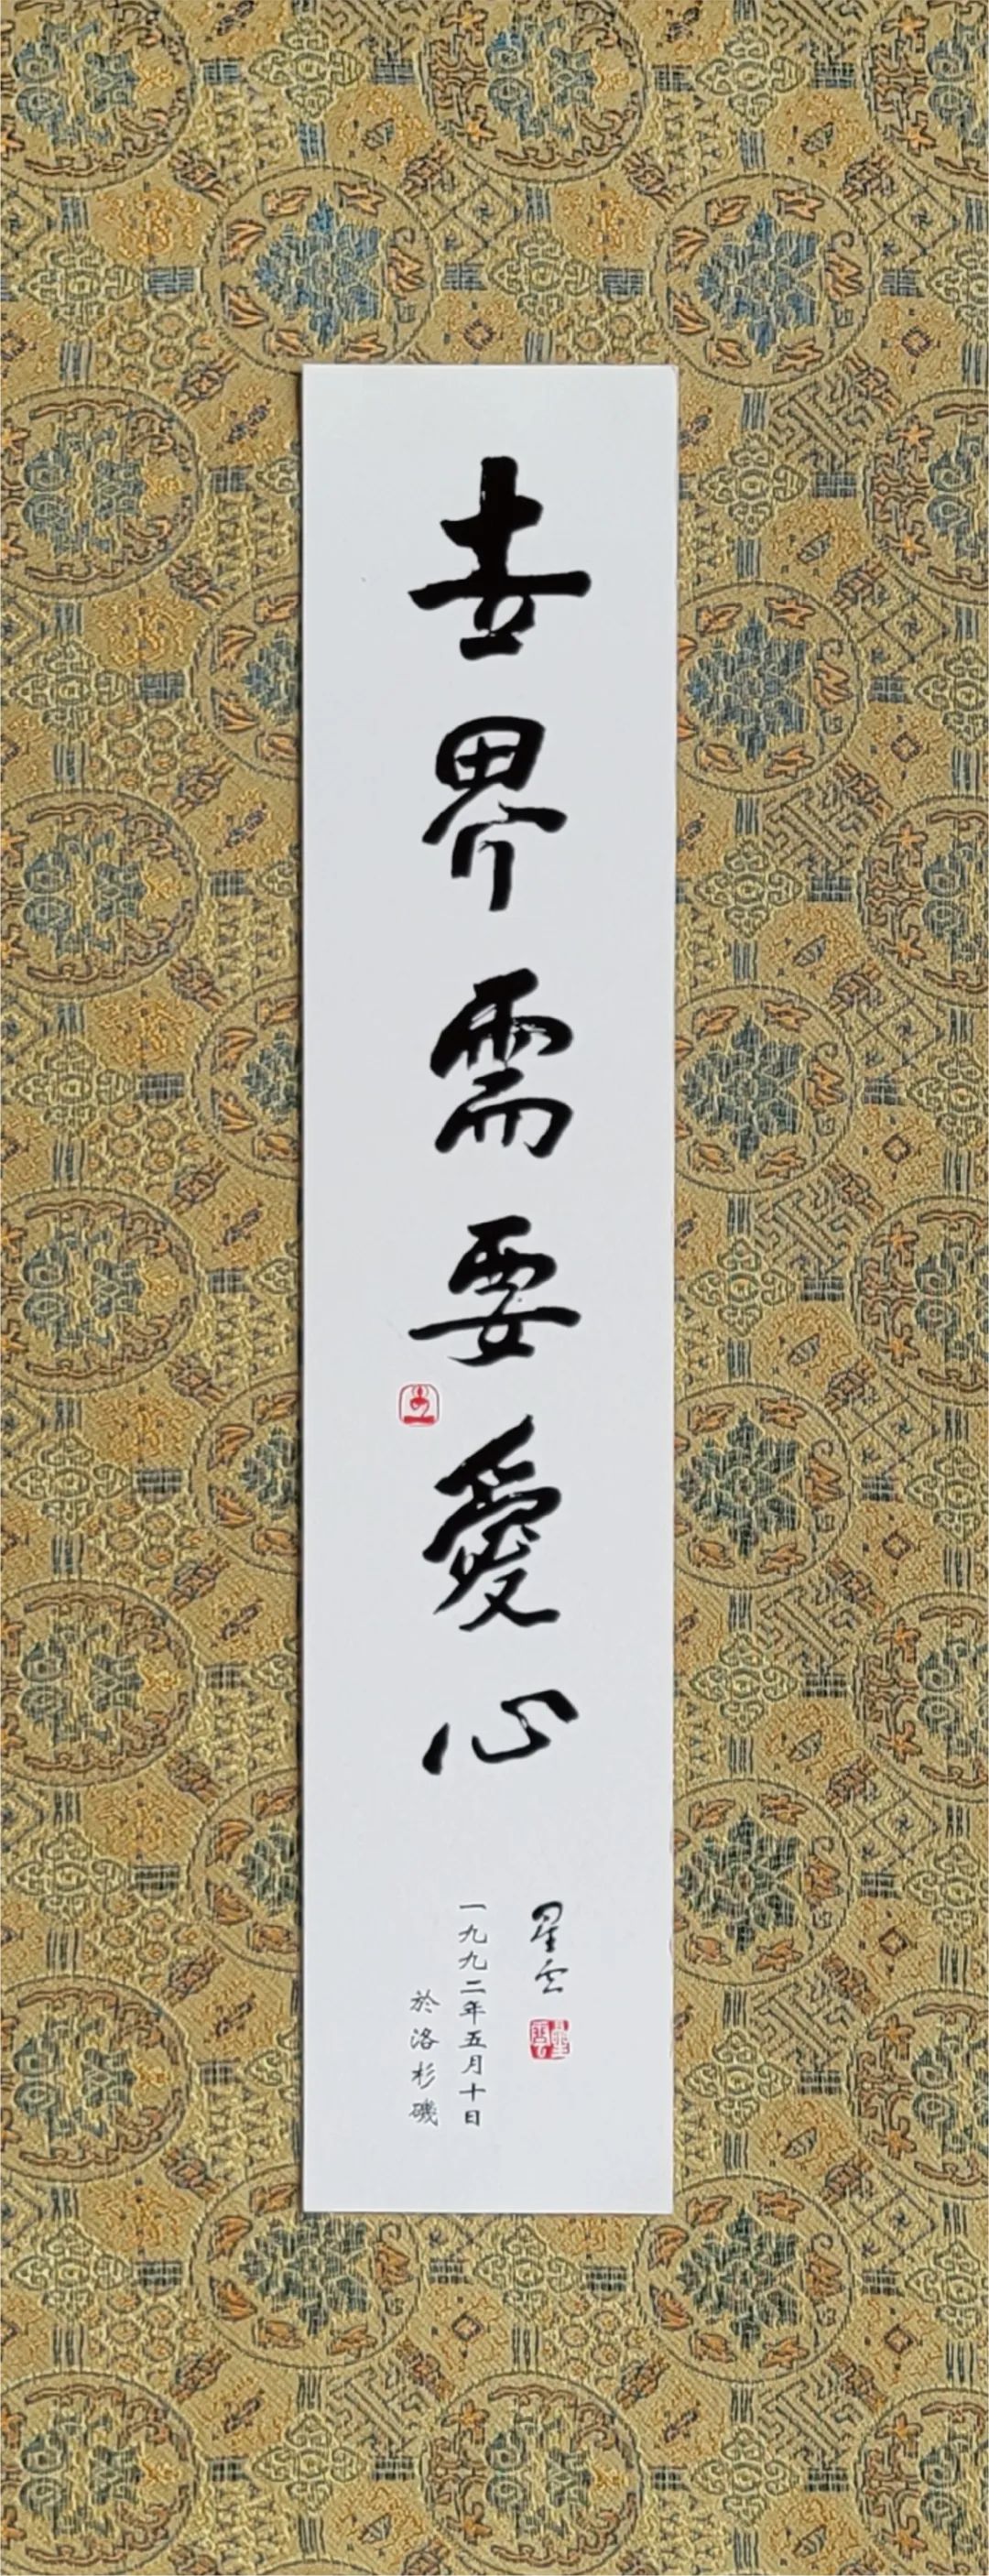 世界需要愛心
星云
一九九二年五月十日
於洛杉磯